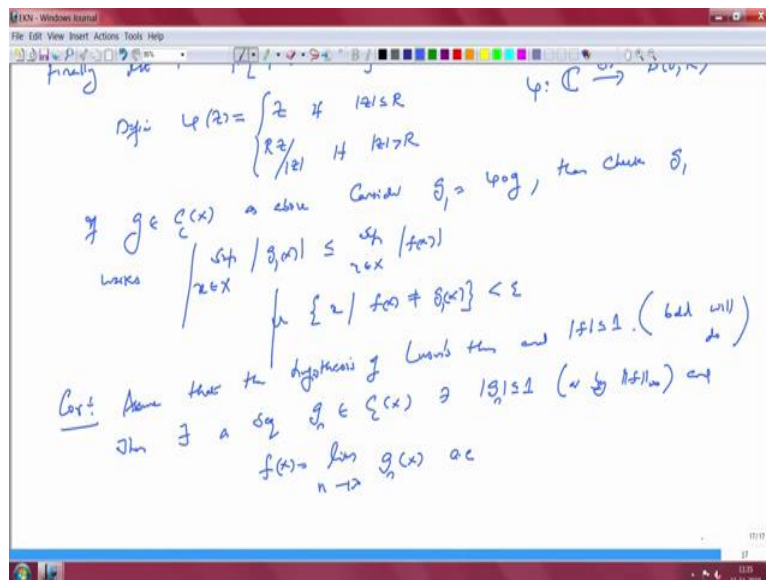 EKN - Windows Journal
File Edit View Insert Actions Tools Help
finally
φ: ℂ → D(0,R)
Define φ(z) = { z if |z| ≤ R
Rz/|z| if |z| > R
If g ∈ C_c(X) as above Consider g₁ = φ∘g, then check g₁
works sup_{x∈X} |g₁(x)| ≤ sup_{x∈X} |f(x)|
μ { x | f(x) ≠ g₁(x) } < ε
Cor: Assume that the hypothesis of Lusin's thm and |f| ≤ 1. (bdd will do)
Then ∃ a seq g_n ∈ C_c(X) ∋ |g_n| ≤ 1 (or by ‖f‖_∞) and
f(x) = lim_{n→∞} g_n(x) a.e
17/17
17
11:35